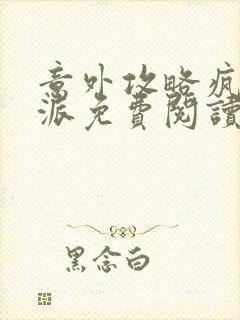 意外攻略疯
派免費閱讀
黑念白